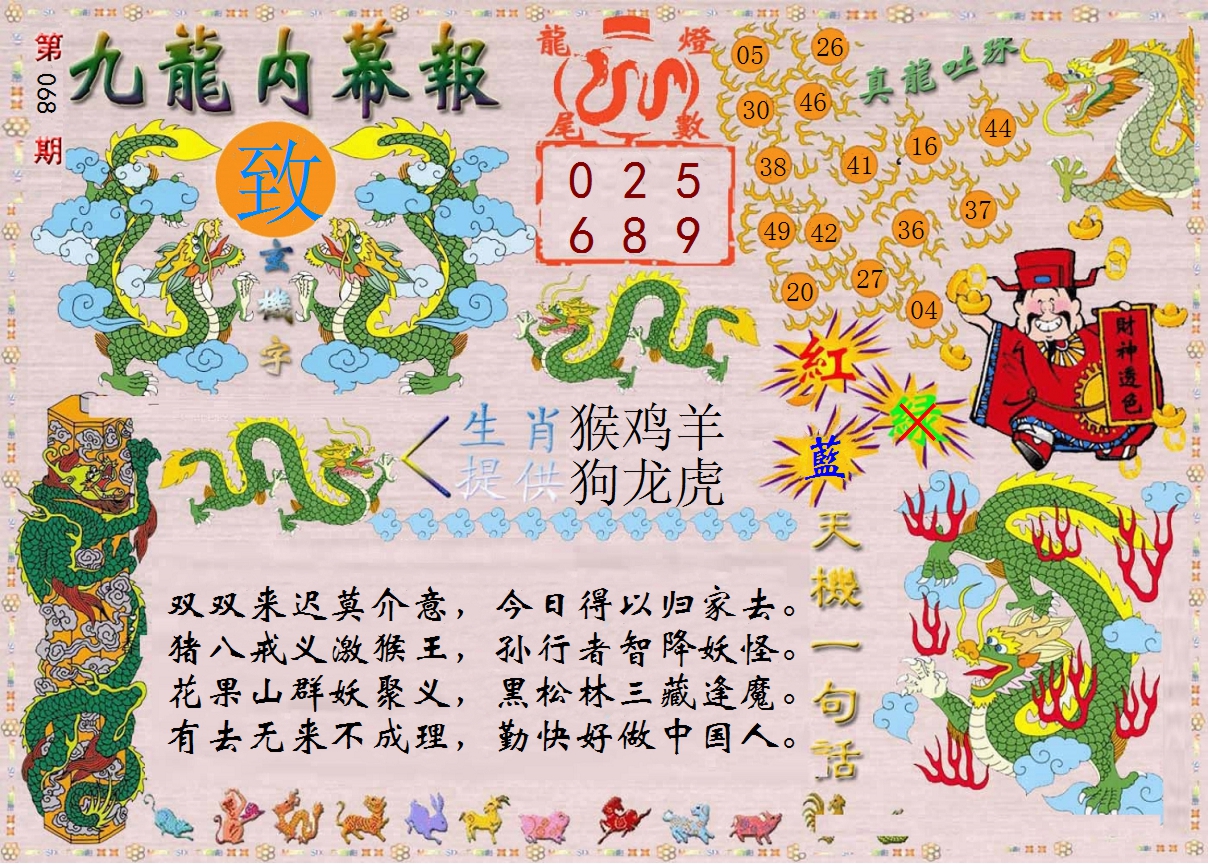 第068期
九龍内幕報
致
玄機字
龍燈
尾數
0 2 5
6 8 9
真龍吐珠
05
26
30
46
38
41
16
44
49
42
36
37
20
27
04
財神透色
紅
绿
藍
生肖
提供
猴鸡羊
狗龙虎
天機一句話
双双来迟莫介意，今日得以归家去。
猪八戒义激猴王，孙行者智降妖怪。
花果山群妖聚义，黑松林三藏逢魔。
有去无来不成理，勤快好做中国人。